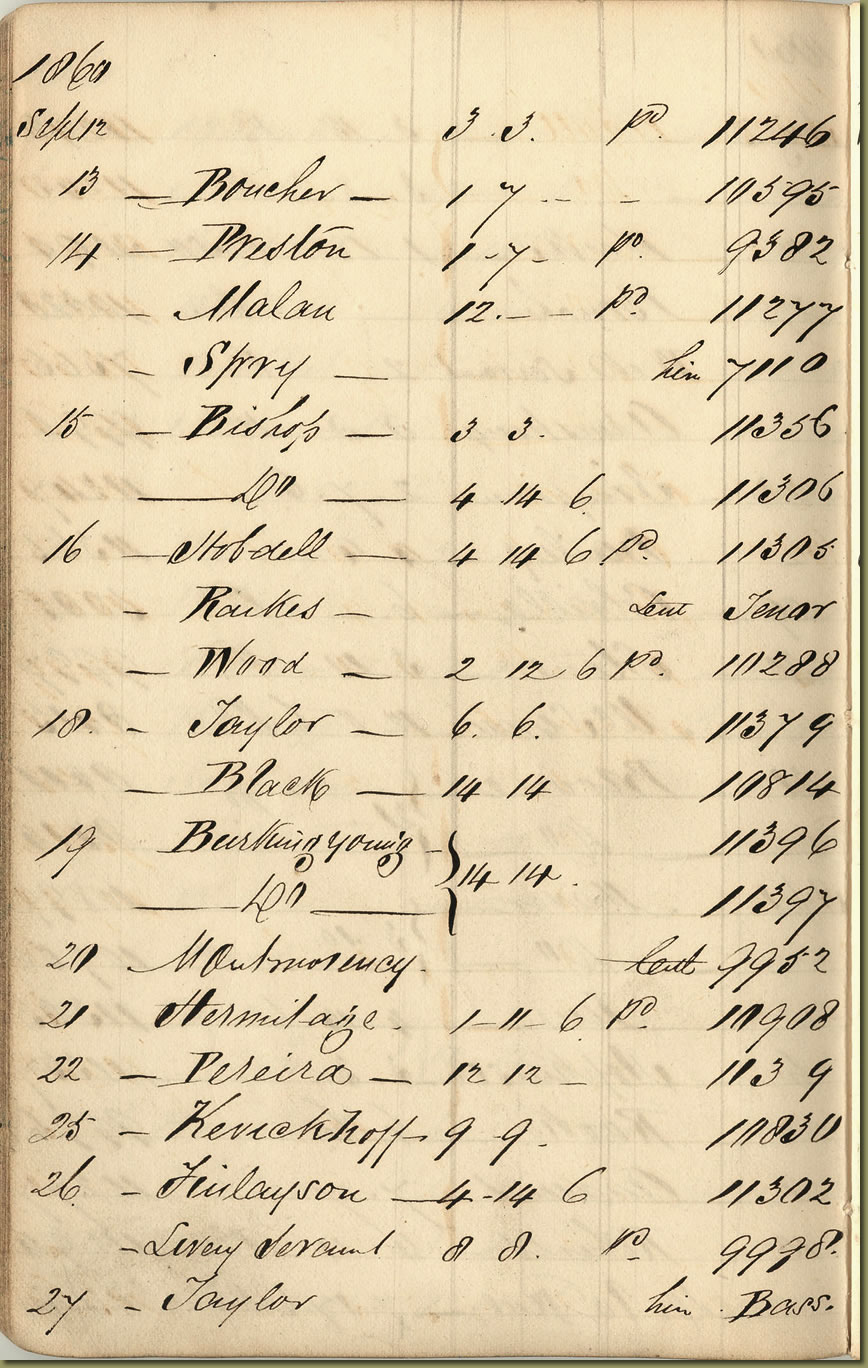 1860
Sept 12 3. 3. pd. 11246
13 — Boucher — 1 7 - - - 10595
14 — Preston 1-7- pd. 9382
- Malan 12. - - pd. 11277
- Spry — hire 7110
15 — Bishop — 3 3. 11356
— Do — 4 14 6. 11306
16 — Hobdell — 4 14 6 pd. 11305
- Raikes — Lent Tenor
- Wood — 2 12 6 pd. 10288
18. - Taylor — 6. 6. 11379
— Black — 14 14 10814
19 Burkingyoung - 11396
— Do — } 14 14. 11397
20 - Montmorency. lent 9952
21 Hermitage. 1-11-6 pd. 10908
22 — Pereira — 12 12 - 113 9
25 — Kerickhoff - 9 9. 10830
26. - Finlayson — 4-14 6 11302
- Levey Servant 8 8. pd. 9998.
27 - Taylor hire Bass.